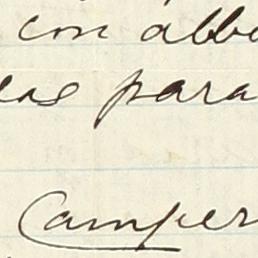 con abb
as para
Camper